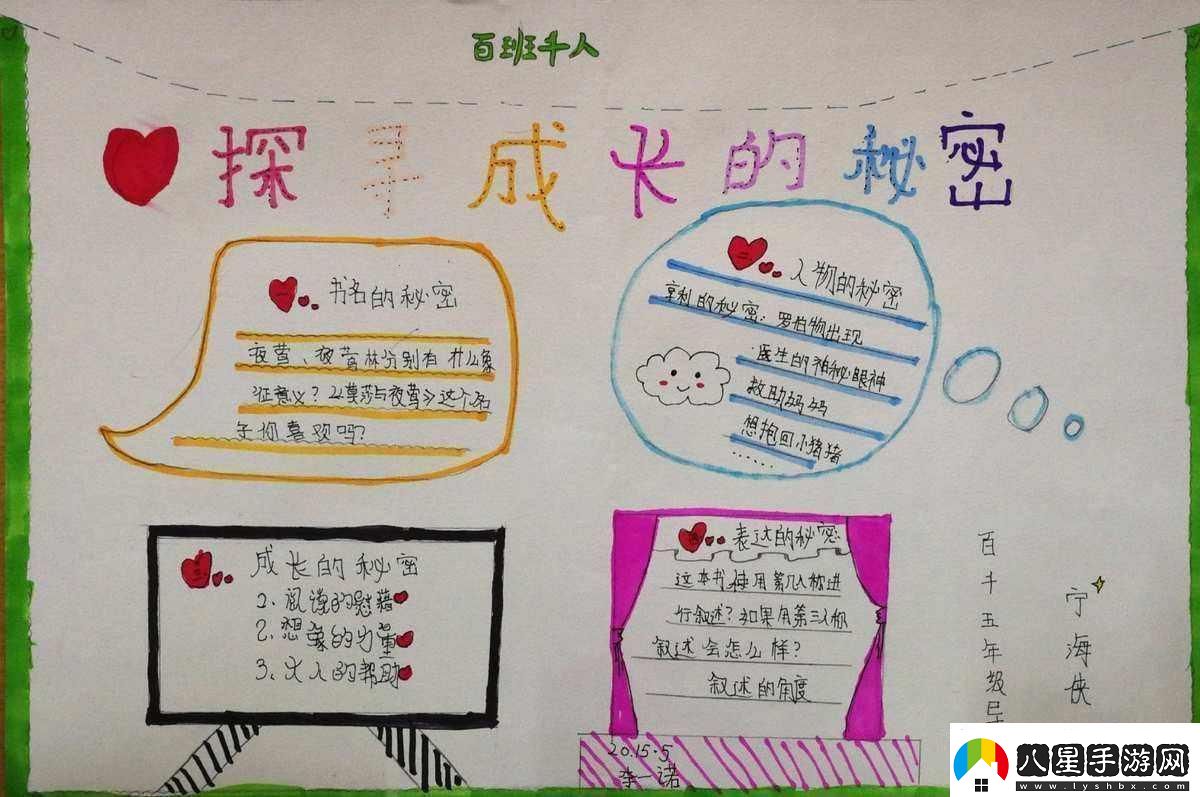 百班千人
探寻成长的秘密
一 书名的秘密
夜莺、夜莺林分别有什么象
征意义？《莫莎与夜莺》这个名
字你喜欢吗？
二 人物的秘密
亨利的秘密：罗伯物出现
医生的神秘眼神
救助妈妈
想抱回小猪猪
……
三 成长的秘密
1、阅读的慰藉
2、想象的力量
3、大人的帮助
四 表达的秘密
这本书使用第几人称进
行叙述？如果用第三人称
叙述会怎么样？
叙述的角度
百千五年级
宁海侠
2015.5
李一诺
八星手游网
www.lyshbx.com